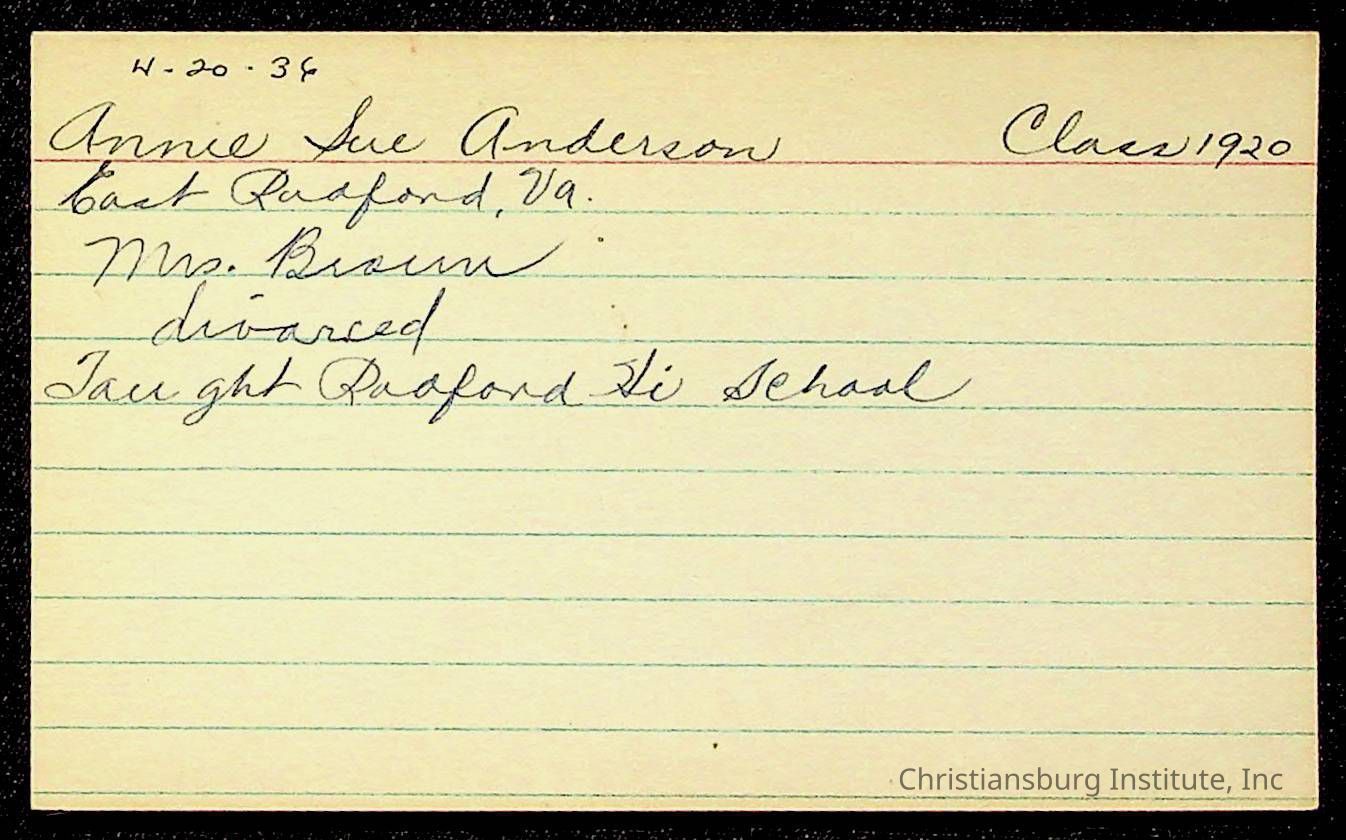 4-20-36
Annie Sue Anderson Class 1920
East Radford, Va.
Mrs. Brown
divorced
Taught Radford Hi School
Christiansburg Institute, Inc